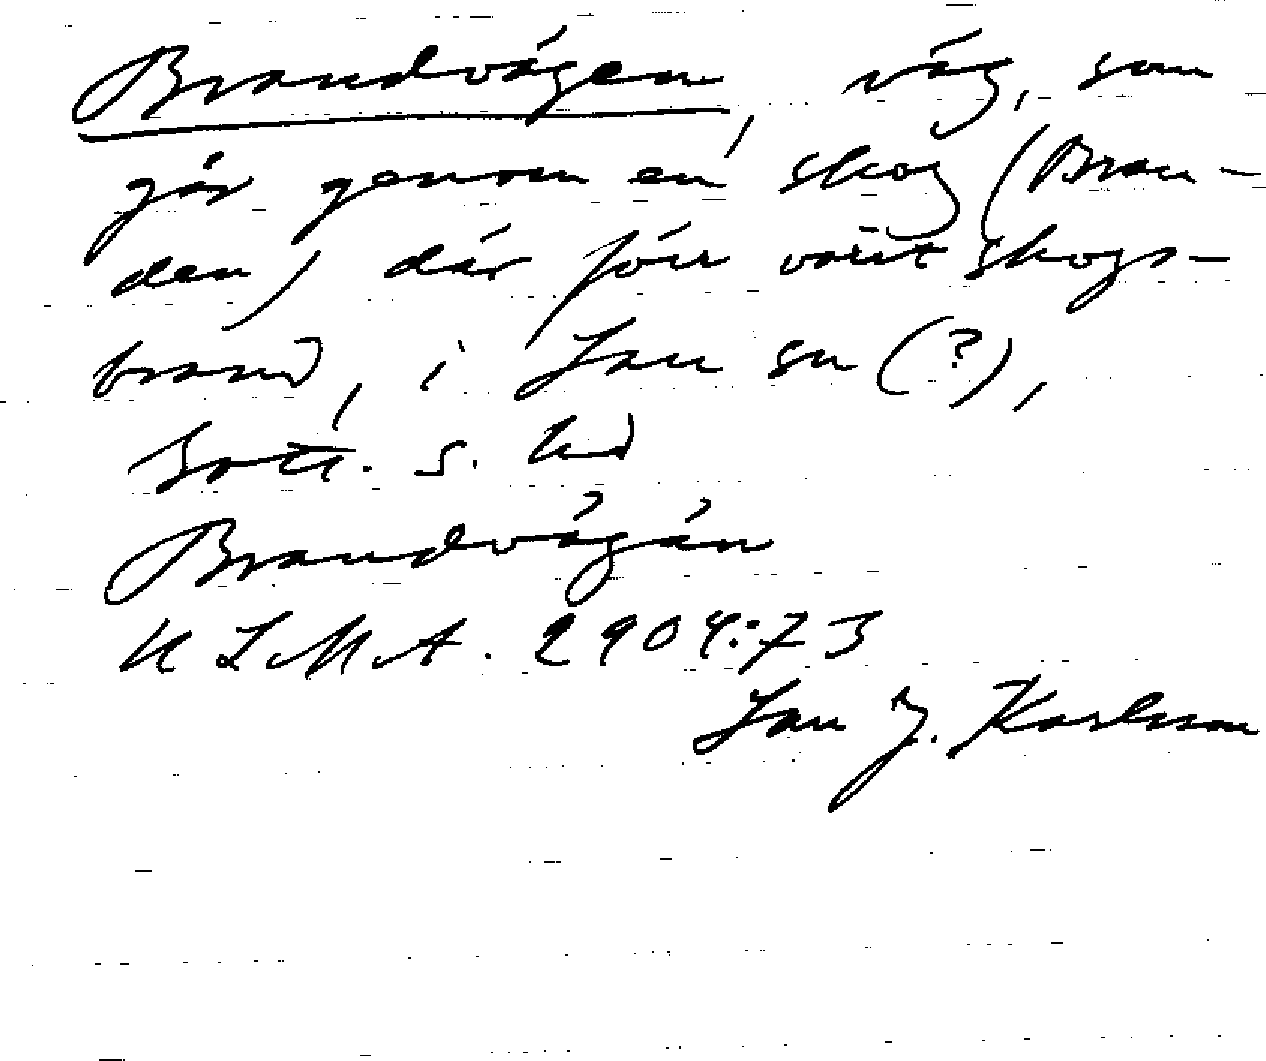 Brandvägen, väg, som
går genom en skog (Bran-
den) där förr varit skogs-
brand, i Lau sn (?),
Gotl. s. hd
Brandvägän
ULMA. 2904:73
J. Karlsson